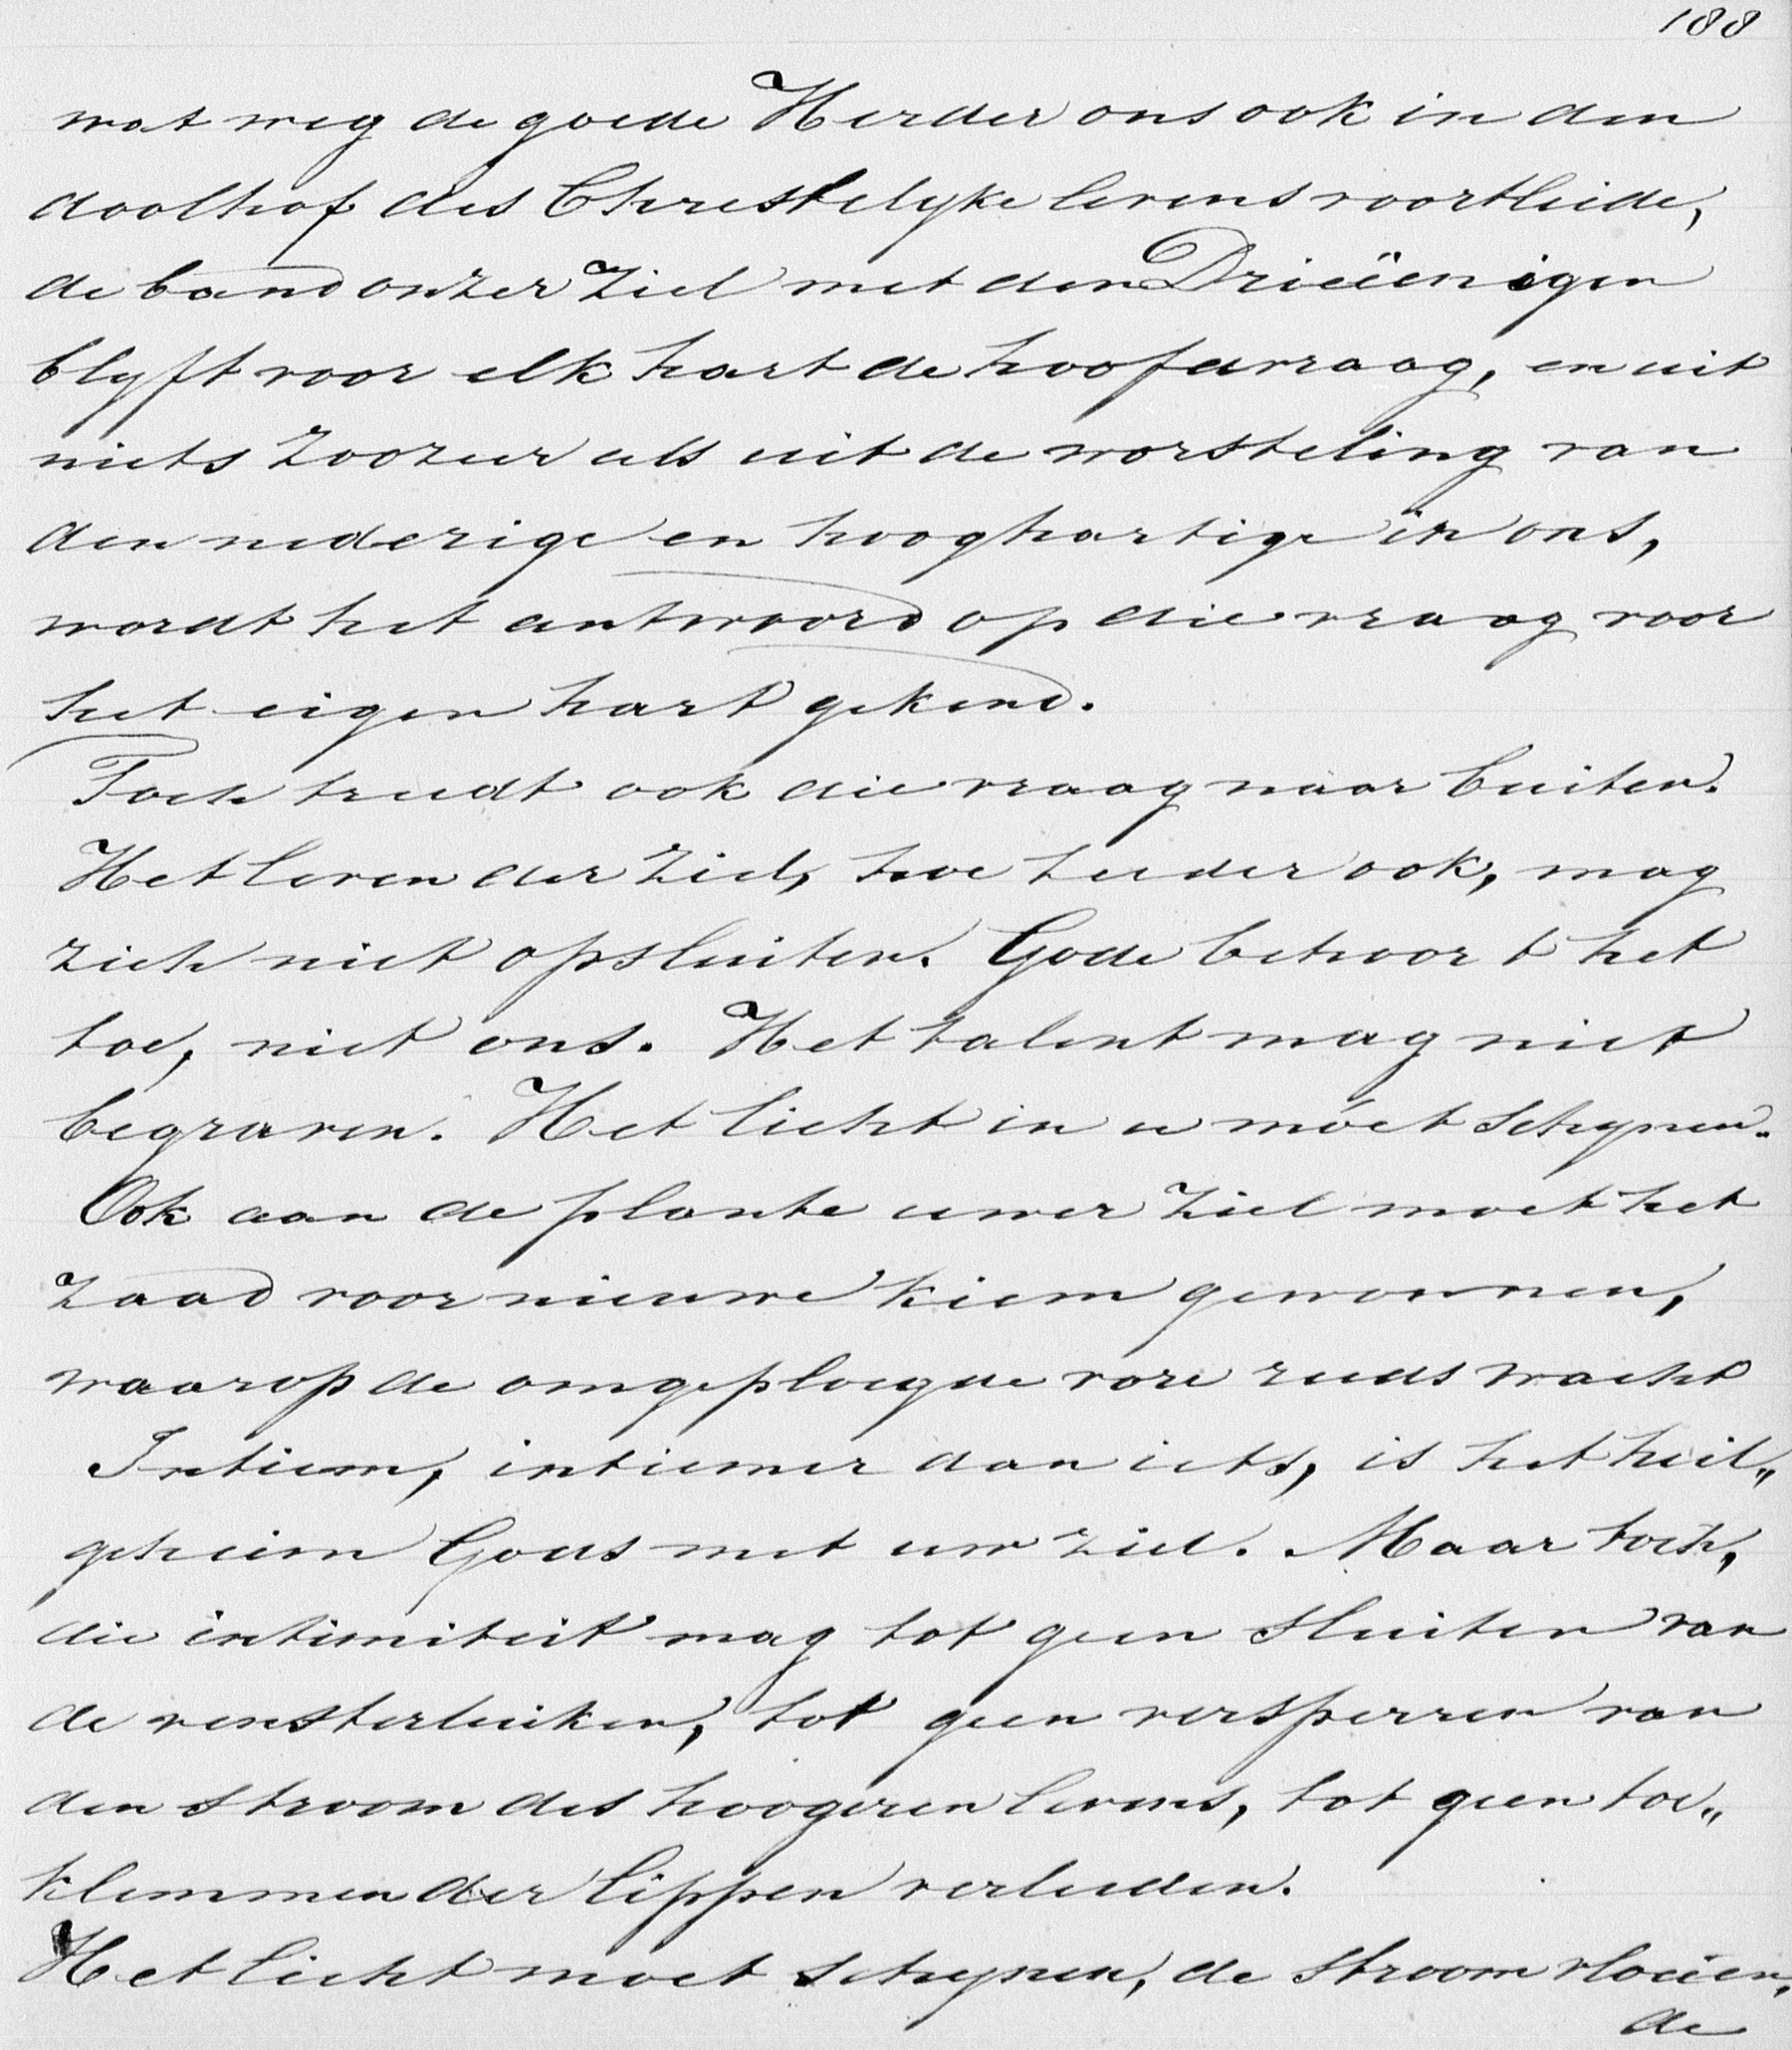 188
wat weg de goede Herder ons ook in den
doolhof des Christelyke levens voortleide,
de band onzer ziel met den Drieëenigen
blyft voor elk hart de hoofdvraag, en uit
niets zoozeer als uit de worsteling van
den nederige en hooghartige in ons,
wordt het antwoord op die vraag voor
het eigen hart gekend.
Toch treedt ook die vraag naar buiten.
Het leven der ziel, hoe teeder ook, mag
zich niet opsluiten. Gode behoort het
toe, niet ons. Het talent mag niet
begraven. Het licht in u moet schynen.
Ook aan de plante uwer ziel moet het
zaad voor nieuwe kiem gewonnen,
waarop de omgeploegde vore reeds wacht
Intiem, intiemer dan iets, is het heil„
geheim Gods met uw ziel. Maar toch,
die intimiteit mag tot geen sluiten van
de vensterluiken, tot geen versperren van
den stroom des hoogeren levens, tot geen toe„
klemmen der lippen verleiden.
Het licht moet schynen, de stroom vloeien,
de